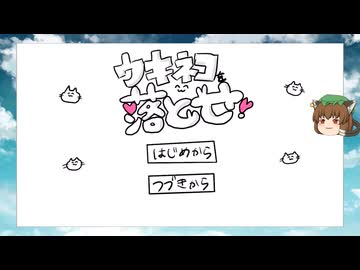 ウキネコを
落とせ!
はじめから
つづきから